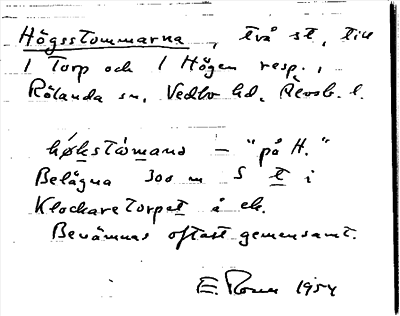 Högsstommarna, två st, till
1 Torp och 1 Högen resp. i
Rölanda sn, Vedbo hd, Älvsb. l.
høkstòmana – "på H."
Belägna 300 m S t i
Klockaretorpet å ek.
Benämnas oftast gemensamt.
E. 1954